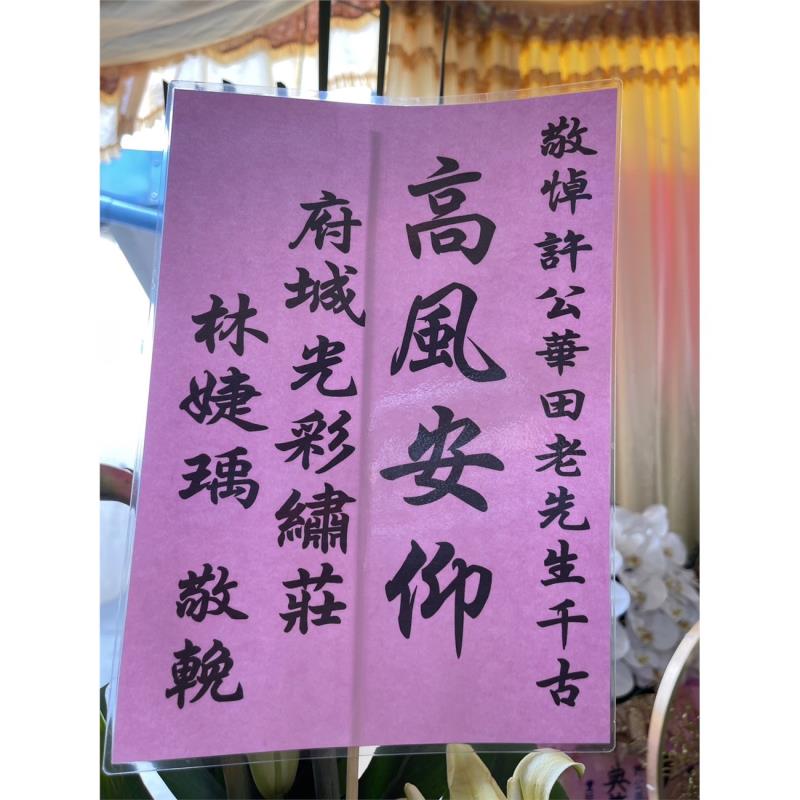 敬悼許公華田老先生千古
高風安仰
府城光彩繡莊
林婕瑀 敬輓